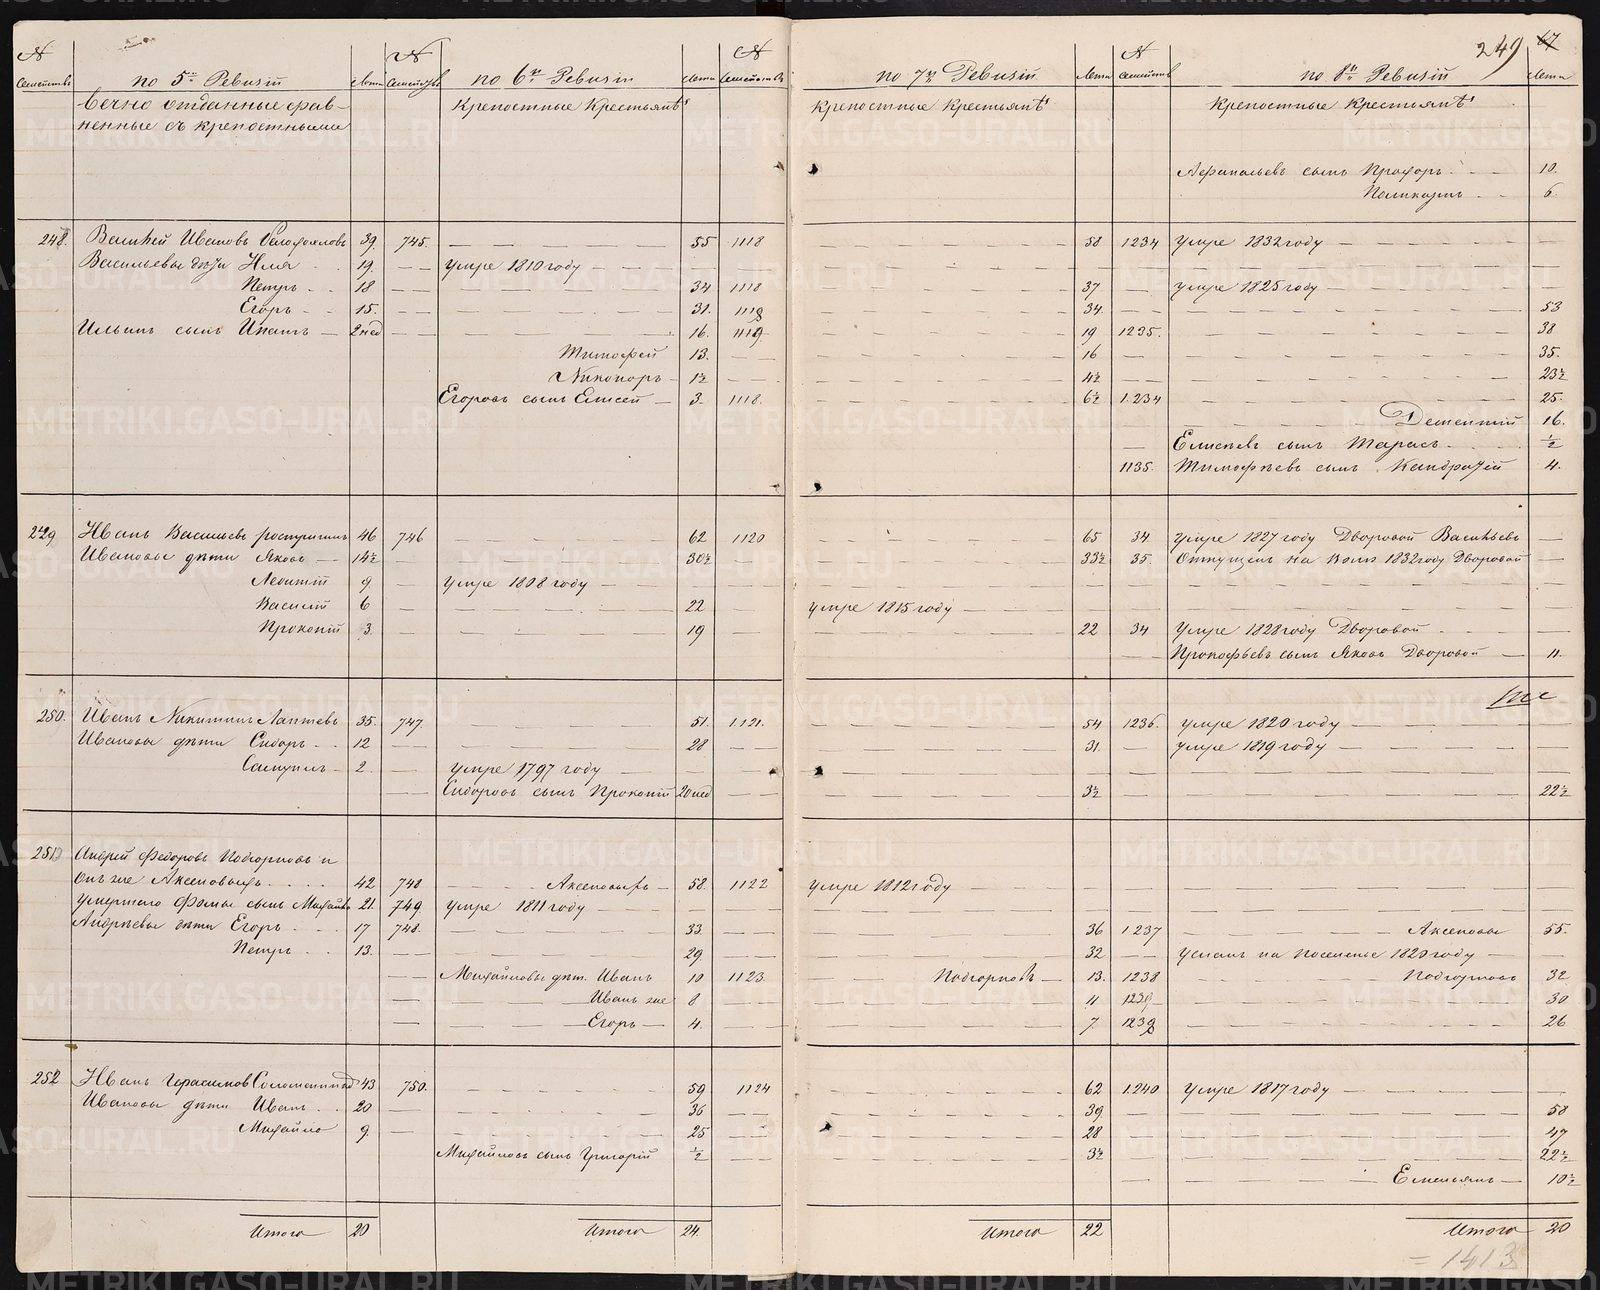 249 67
№ семействъ по 5й Ревизіи лѣта № семействъ по 6й Ревизіи лѣта № семействъ по 7й Ревизіи лѣта № семействъ по 8й Ревизіи лѣта
Вечно отданные срав- Крепостные Крестьянѣ Крепостные Крестьянѣ Крепостные Крестьянѣ
ненные съ крепостными
сынъ Прохоръ 10.
Поликарпъ 6
248. Василей Ивановъ 39. 745. 55 1118 58 1234 умре 1832 году
Васильевы дѣти Илья 19. умре 1810 году
Петръ 18 34 1118 37 умре 1825 году
Егоръ 15. 31. 1118 34. 53
Ильинъ сынъ Игнатъ 2 нед 16. 1119 19 1235. 38
Тимофей 13. 16 35.
Никоноръ 1½ 4½ 23½
Егоровъ сынъ Елисей 3. 1118. 6½ 1234 25.
Дементій 16.
Елисеевъ сынъ Тарасъ ½
1135. Тимофеевъ сынъ Кандратей 4.
249 Иванъ Васильевъ 46 746 62 1120 65 34 умре 1827 году Дворовой Васильевъ
Ивановы дѣти Яковъ 14½ 30½ 33½ 35. Отпущенъ на волю 1832 году Дворовой
Леонтій 9 умре 1808 году
Василій 6 22 умре 1815 году
Прокопій 3 19 22 34 Умре 1828 году Дворовой
Прокофьевъ сынъ Яковъ Дворовой 11.
250. Иванъ Никитинъ Лаптевъ 35. 747. 51. 1121. 54 1236. умре 1820 году
Ивановы дѣти Сидоръ 12 28 31. умре 1819 году
Самуилъ 2. умре 1797 году
Сидоровъ сынъ Прокопій 20 нед 3½ 22½
251 Андрей Федоровъ Подгорновъ и
онъ же Аксеновыхъ 42 748 Аксеновыхъ 58. 1122 умре 1812 году
умершаго Фомы сынъ Михайла 21. 749. умре 1811 году
Андреевы дѣти Егоръ 17 748. 33 36 1237 Аксеновы 55.
Петръ 13. 29 32 Усланъ на поселенье 1820 году
Михайловы дѣт. Иванъ 10 1123 Подгорновъ 13. 1238 Подгорновъ 32
Иванъ же 8 11 1239 30
Егоръ 4. 7. 1239 26
252 Иванъ Герасимов 43 750. 59 1124 62 1240 Умре 1817 году
Ивановы дѣти Иванъ 20 36 39. 58
Михайло 9. 25 28 47
Михайловъ сынъ Григорій ½ 3½ 22½
Емельянъ 10½
Итого 20 Итого 24. Итого 22 Итого 20
= 1413
METRIKI.GASO-URAL.RU